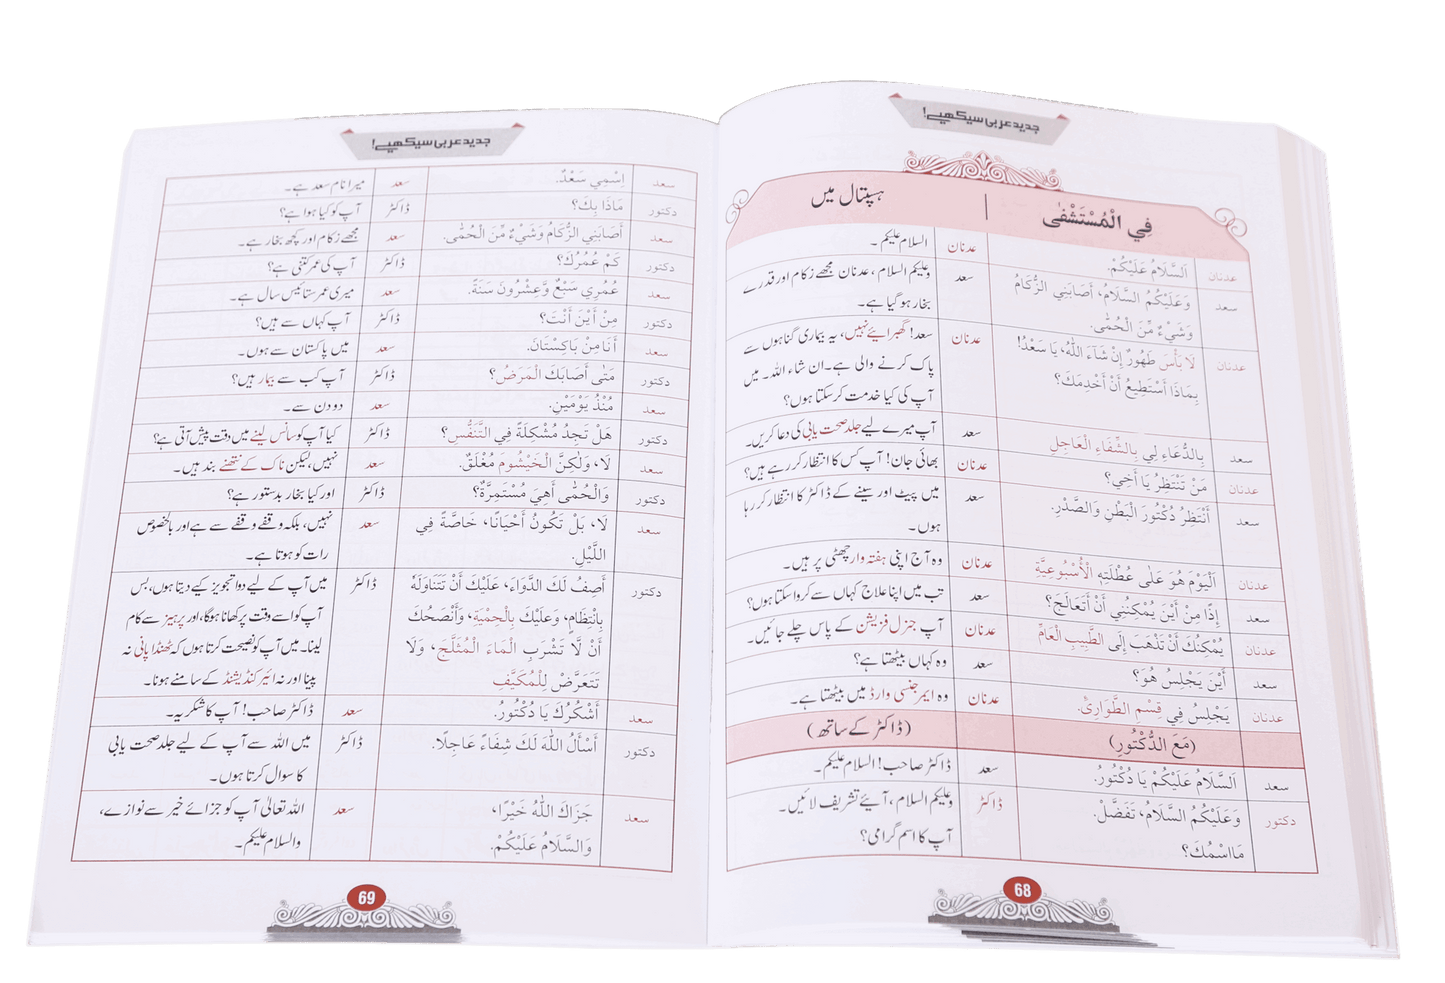 جدید عربی سیکھیے!
فِي الْمُسْتَشْفٰى | ہسپتال میں
عدنان اَلسَّلَامُ عَلَيْكُمْ. عدنان السلام علیکم۔
سعد وَعَلَيْكُمُ السَّلَامُ، أَصَابَنِي الزُّكَامُ سعد وعلیکم السلام، عدنان مجھے زکام اور قدرے
وَشَيْءٌ مِّنَ الْحُمّٰى. بخار ہو گیا ہے۔
عدنان لَا بَأْسَ طَهُورٌ إِنْ شَآءَ اللّٰهُ، يَا سَعْدُ! عدنان سعد! گھبرائیے نہیں، یہ بیماری گناہوں سے
بِمَاذَا أَسْتَطِيعُ أَنْ أَخْدِمَكَ؟ پاک کرنے والی ہے۔ ان شاء اللہ۔ میں
آپ کی کیا خدمت کر سکتا ہوں؟
سعد بِالدُّعَاءِ لِي بِالشِّفَاءِ الْعَاجِلِ سعد آپ میرے لیے جلد صحت یابی کی دعا کریں۔
عدنان مَنْ تَنْتَظِرُ يَا أَخِي؟ عدنان بھائی جان! آپ کس کا انتظار کر رہے ہیں؟
سعد أَنْتَظِرُ دُكْتُورَ الْبَطْنِ وَالصَّدْرِ. سعد میں پیٹ اور سینے کے ڈاکٹر کا انتظار کر رہا
ہوں۔
عدنان اَلْيَوْمَ هُوَ عَلٰى عُطْلَتِهِ الْأُسْبُوعِيَّةِ عدنان وہ آج اپنی ہفتہ وار چھٹی پر ہیں۔
سعد إِذًا مِنْ أَيْنَ يُمْكِنُنِي أَنْ أَتَعَالَجَ؟ سعد تب میں اپنا علاج کہاں سے کروا سکتا ہوں؟
عدنان يُمْكِنُكَ أَنْ تَذْهَبَ إِلَى الطَّبِيبِ الْعَامِّ عدنان آپ جنرل فزیشن کے پاس چلے جائیں۔
سعد أَيْنَ يَجْلِسُ هُوَ؟ سعد وہ کہاں بیٹھتا ہے؟
عدنان يَجْلِسُ فِي قِسْمِ الطَّوَارِئِ. عدنان وہ ایمرجنسی وارڈ میں بیٹھتا ہے۔
(مَعَ الدُّكْتُورِ) (ڈاکٹر کے ساتھ)
سعد اَلسَّلَامُ عَلَيْكُمْ يَا دُكْتُورُ. سعد ڈاکٹر صاحب! السلام علیکم۔
دكتور وَعَلَيْكُمُ السَّلَامُ، تَفَضَّلْ. ڈاکٹر وعلیکم السلام، آیئے تشریف لائیں۔
مَااسْمُكَ؟ آپ کا اسم گرامی؟
68
جدید عربی سیکھیے!
سعد اِسْمِي سَعْدٌ. سعد میرا نام سعد ہے۔
دكتور مَاذَا بِكَ؟ ڈاکٹر آپ کو کیا ہوا ہے؟
سعد أَصَابَنِي الزُّكَامُ وَشَيْءٌ مِّنَ الْحُمّٰى. سعد مجھے زکام اور کچھ بخار ہے۔
دكتور كَمْ عُمُرُكَ؟ ڈاکٹر آپ کی عمر کتنی ہے؟
سعد عُمُرِي سَبْعٌ وَّعِشْرُونَ سَنَةً. سعد میری عمر ستائیس سال ہے۔
دكتور مِنْ أَيْنَ أَنْتَ؟ ڈاکٹر آپ کہاں سے ہیں؟
سعد أَنَا مِنْ بَاكِسْتَانَ. سعد میں پاکستان سے ہوں۔
دكتور مَتٰى أَصَابَكَ الْمَرَضُ؟ ڈاکٹر آپ کب سے بیمار ہیں؟
سعد مُنْذُ يَوْمَيْنِ. سعد دو دن سے۔
دكتور هَلْ تَجِدُ مُشْكِلَةً فِي التَّنَفُّسِ؟ ڈاکٹر کیا آپ کو سانس لینے میں دقت پیش آتی ہے؟
سعد لَا، وَلٰكِنَّ الْخَيْشُومَ مُغْلَقٌ. سعد نہیں، لیکن ناک کے نتھنے بند ہیں۔
دكتور وَالْحُمّٰى أَهِيَ مُسْتَمِرَّةٌ؟ ڈاکٹر اور کیا بخار بدستور ہے؟
سعد لَا، بَلْ تَكُونُ أَحْيَانًا، خَاصَّةً فِي سعد نہیں، بلکہ وقفے وقفے سے ہے اور بالخصوص
اللَّيْلِ. رات کو ہوتا ہے۔
دكتور أَصِفُ لَكَ الدَّوَاءَ، عَلَيْكَ أَنْ تَتَنَاوَلَهٗ ڈاکٹر میں آپ کے لیے دوا تجویز کیے دیتا ہوں، بس
بِانْتِظَامٍ، وَعَلَيْكَ بِالْحِمْيَةِ، وَأَنْصَحُكَ آپ کو اسے وقت پر کھانا ہوگا، اور پرہیز سے کام
أَنْ لَّا تَشْرَبِ الْمَاءَ الْمُثَلَّجَ، وَلَا لینا۔ میں آپ کو نصیحت کرتا ہوں کہ ٹھنڈا پانی نہ
تَتَعَرَّضْ لِلْمُكَيِّفِ پینا اور نہ ائیر کنڈیشنڈ کے سامنے ہونا۔
سعد أَشْكُرُكَ يَا دُكْتُورُ. سعد ڈاکٹر صاحب! آپ کا شکریہ۔
دكتور أَسْأَلُ اللّٰهَ لَكَ شِفَاءً عَاجِلًا. ڈاکٹر میں اللہ سے آپ کے لیے جلد صحت یابی
کا سوال کرتا ہوں۔
سعد جَزَاكَ اللّٰهُ خَيْرًا، سعد اللہ تعالیٰ آپ کو جزائے خیر سے نوازے،
وَالسَّلَامُ عَلَيْكُمْ. والسلام علیکم۔
69